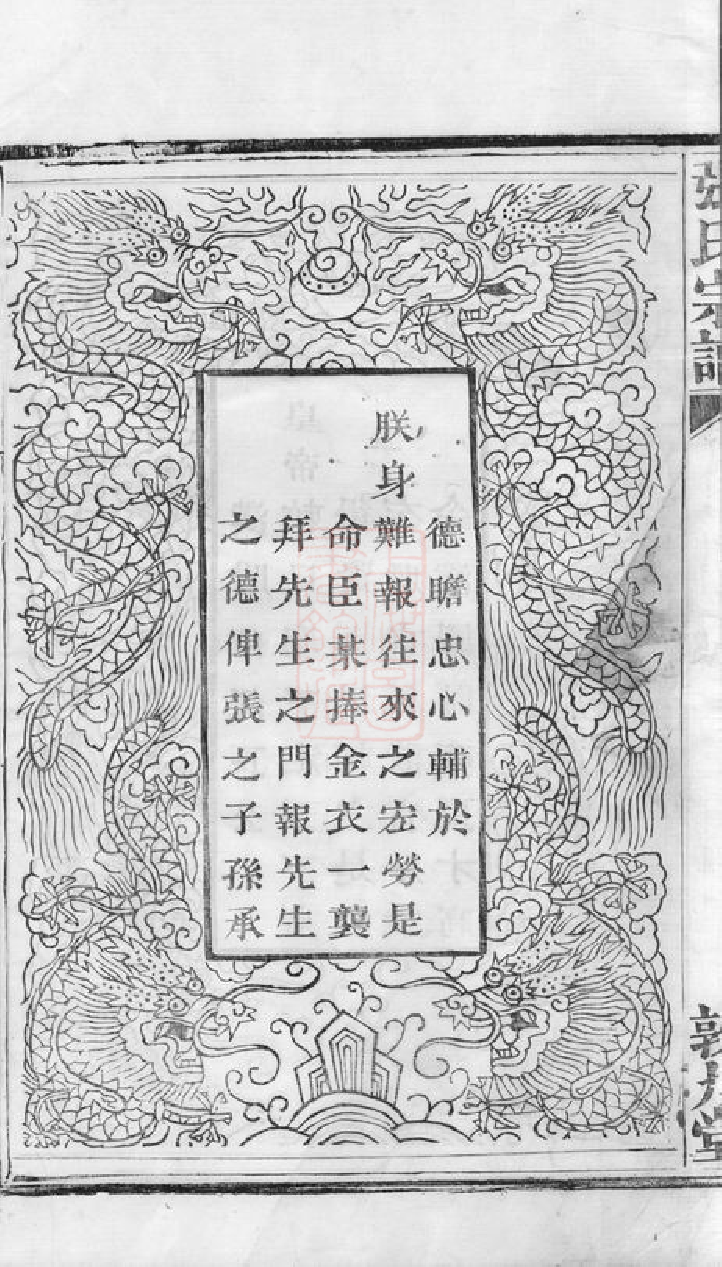 德瞻忠心輔於
朕身難報往來之宏勞是
命臣某捧金衣一襲
拜先生之門報先生
之德俾張之子孫承
張氏宗譜
敦月堂